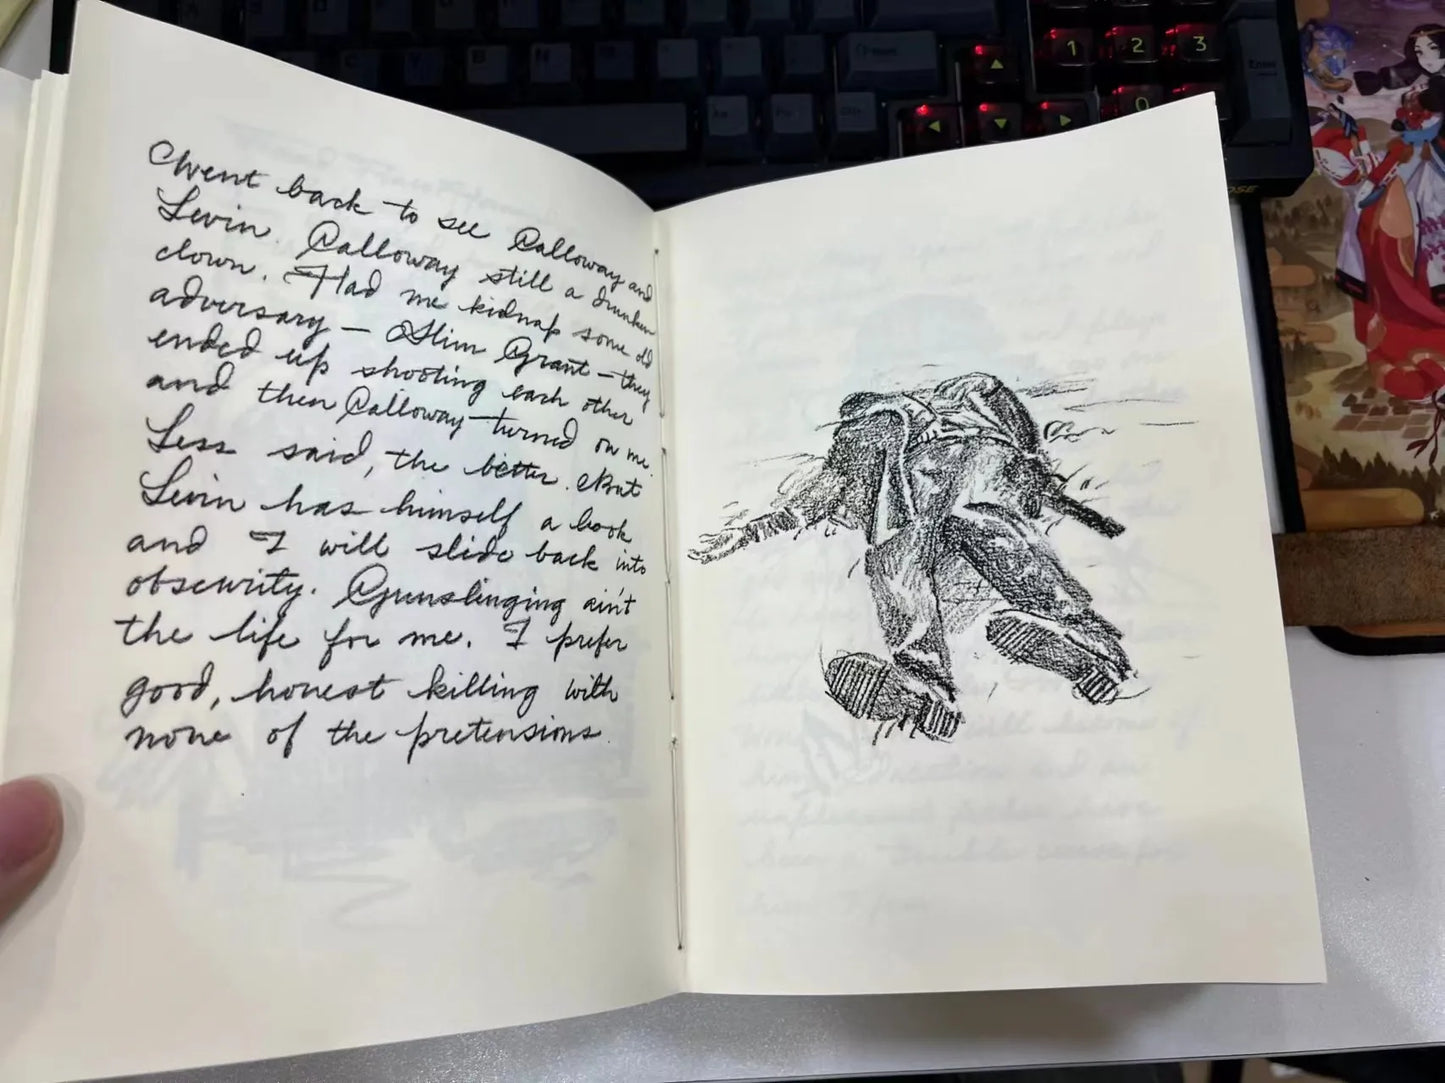 Went back to see Calloway and
Levin. Calloway still a drunken
clown. Had me kidnap some old
adversary – Slim Grant – they
ended up shooting each other
and then Calloway turned on me.
Less said, the better. But
Levin has himself a book
and I will slide back into
obscurity. Gunslinging ain't
the life for me. I prefer
good, honest killing with
none of the pretensions.
1 2 3
0
Enter